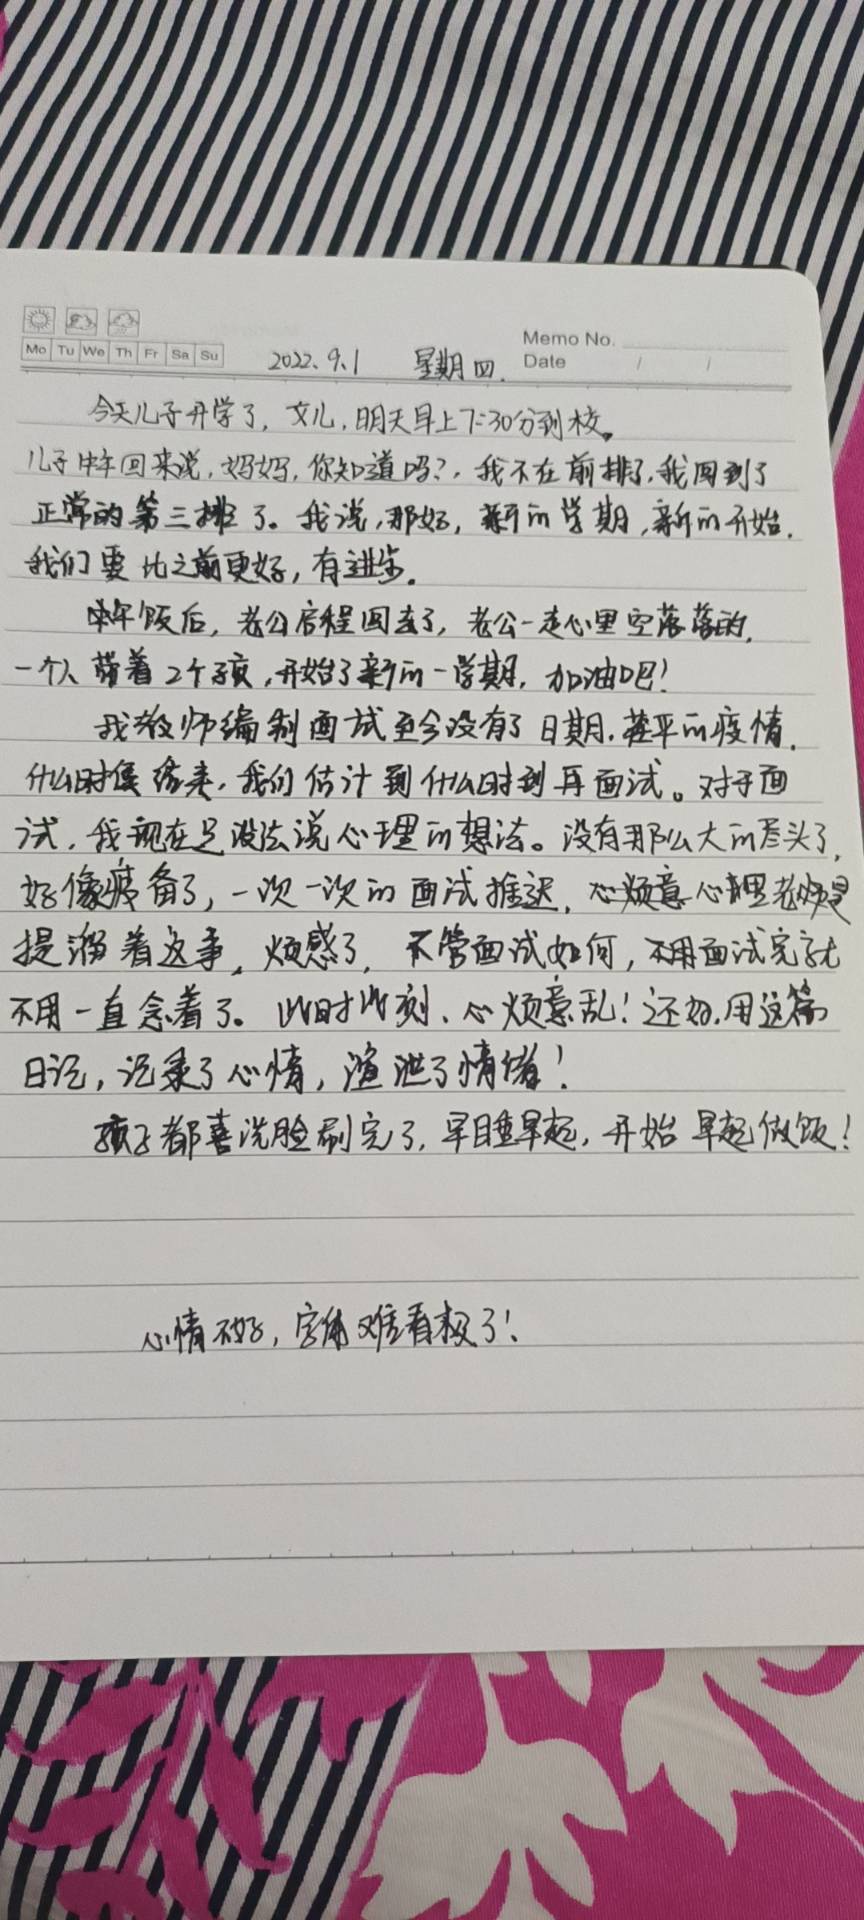 Mo Tu We Th Fr Sa Su
2022.9.1 星期四.
Memo No.
Date / /
今天儿子开学了，女儿，明天早上7:30分到校。
儿子中午回来说，妈妈，你知道吗？，我不在前排了，我回到了
正常的第三排了。我说，那好，新的学期，新的开始.
我们要比之前更好，有进步.
中午饭后，老公启程回去了，老公一走心里空落落的，
一个人带着2个孩，开始了新的一学期，加油吧！
我教师编制面试至今没有了日期，茌平的疫情，
什么时候结束，我们估计到什么时到再面试。对于面
试，我现在是没法说心理的想法。没有那么大的劲头了，
好像疲备了，一次一次的面试推迟，心烦意心里老是
提溜着这事，烦感了，不管面试如何，不用面试完就
不用一直念着了。此时此刻、心烦意乱！还好，用这篇
日记，记录了心情，渲泄了情绪！
孩子都喜洗脸刷完了，早睡早起，开始早起做饭！
心情不好，字体难看极了！